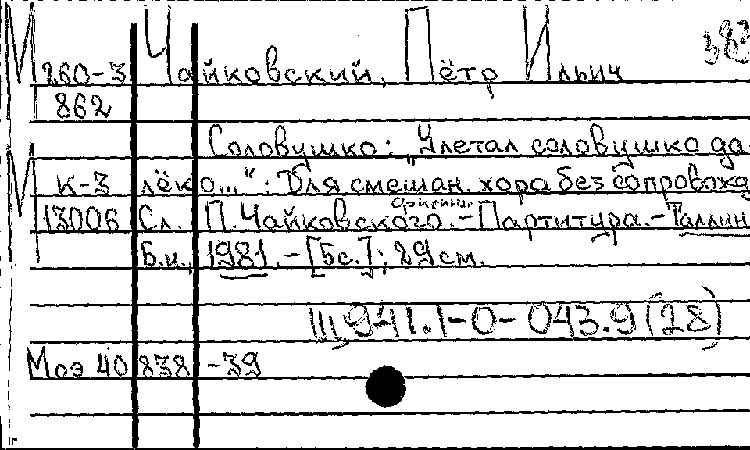 М 260-3 Чайковский, Пётр Ильич
862
Соловушко: "Улетал соловушко да-
М к-3 лёко...": Для смешан. хора без сопровожд
13006 Сл. П. Чайковского. - Партитура. - Таллин
Б.и., 1981. - [6с.]; 29см.
Ш 941.1-0-043.9(28)
Моэ 40 838 -39